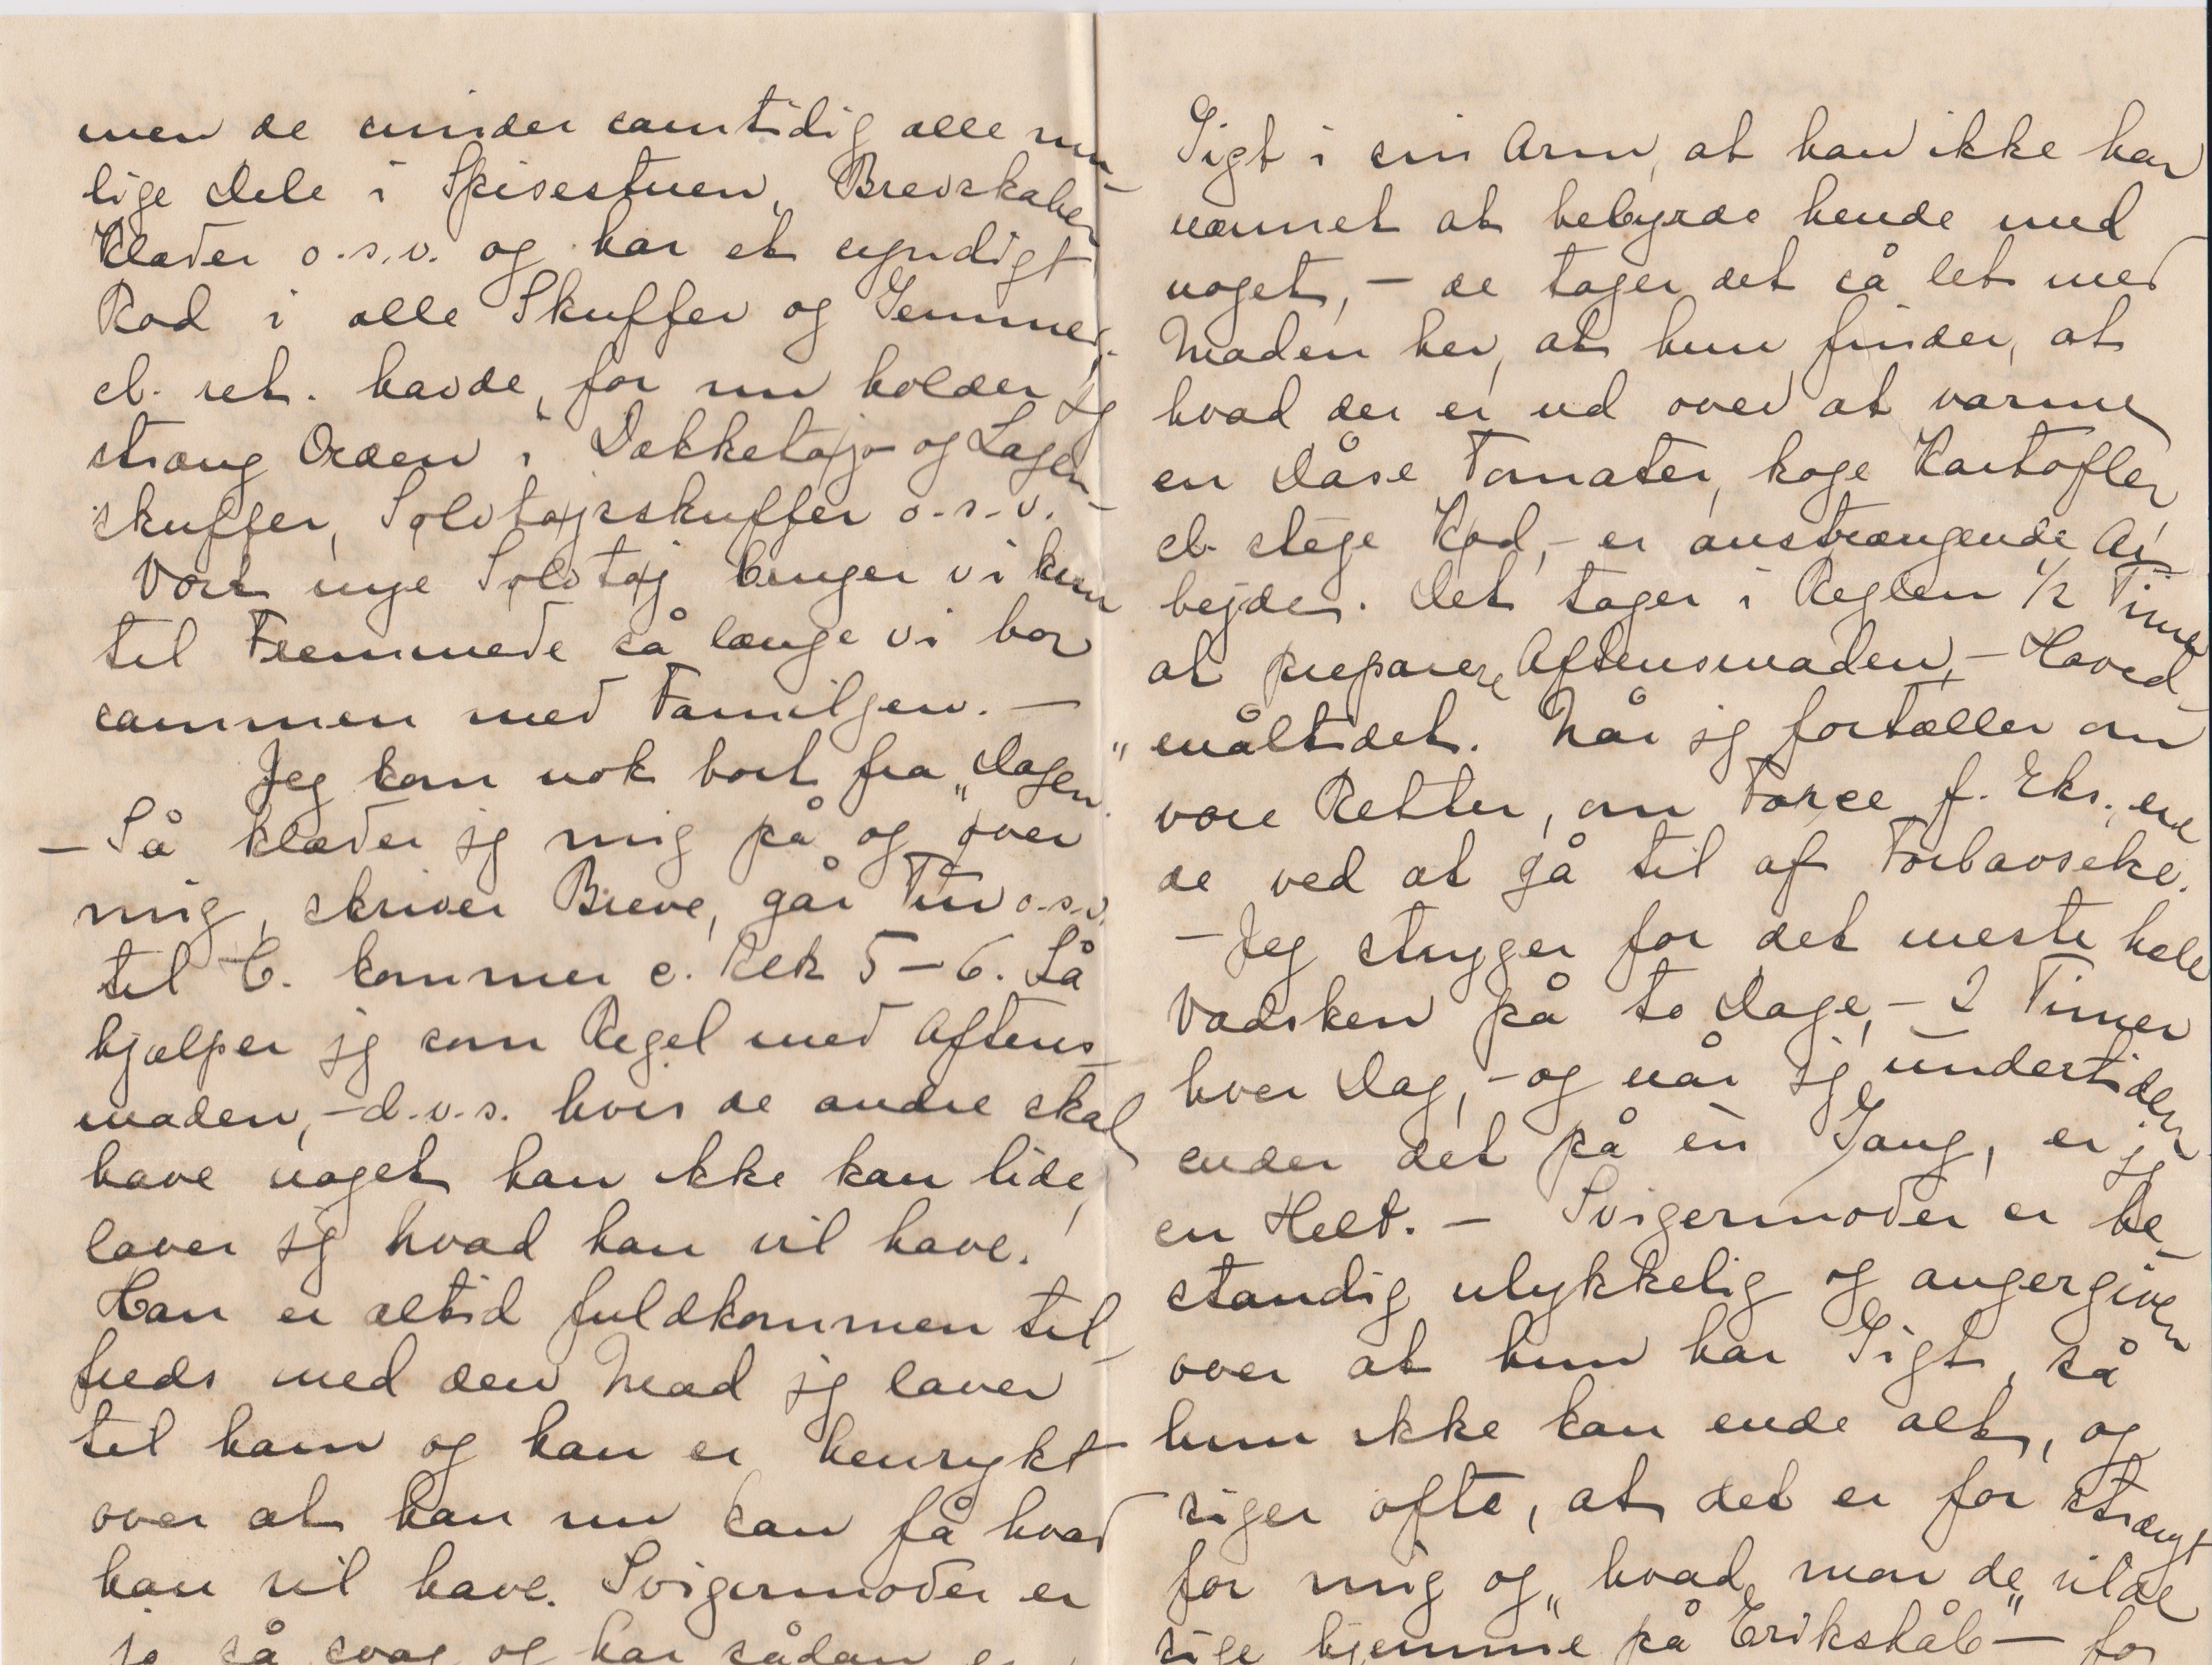 men de sinder samtidig alle mu-
lige Dele i Spisestuen, Brevskaber
Klæder o.s.v. og har et syndigt
Rod i alle Skuffer og Gemmer,
el. ret. havde, for nu holder jg
stræng Orden i Dækketøjs- og Lagen-
skuffer, Sølvtøjsskuffer o.s.v. -
Vort nye Sølvtøj bruger vi kun
til Fremmede så længe vi bor
sammen med Familjen. -
Jeg kom nok bort fra „Dagen"
- Så klæder jg mig på og øver
mig, skriver Breve, går Tur o.s.v.
til C. kommer c. Klk 5-6. Så
hjælper jg som Regel med Aftens-
maden, - d.v.s. hvis de andre skal
have noget han ikke kan lide,
laver jg hvad han vil have.
Han er altid fuldkommen til-
freds med den Mad jg laver
til ham og han er henrykt
over at han nu kan få hvad
han vil have. Svigermoder er
jo så svag og har sådan en
Gigt i sin Arm, at han ikke har
nænnet at bebyrde hende med
noget, - de tager det så let med
Maden her, at hun finder, at
hvad der er ud over at varme
en Dåse Tomater, koge Kartofler
el. stege Kød, - er anstrængende Ar-
bejde. Det tager i Reglen 1/2 Time
at preparere Aftensmaden, - Hoved-
måltidet. Når jg fortæller om
vore Retter, om Farce f. Eks., ere
de ved at gå til af Forbavselse.
- Jeg stryger for det meste hele
Vadsken på to Dage, - 2 Timer
hver Dag, - og når jg undertiden
ender det på en Gang, er jg
en Helt. - Svigermoder er be-
standig ulykkelig og angergiven
over at hun har Gigt, så
hun ikke kan ende alt, og
siger ofte, at det er for strængt
for mig og „hvad mon de" vilde
sige hjemme på Erikshåb - for